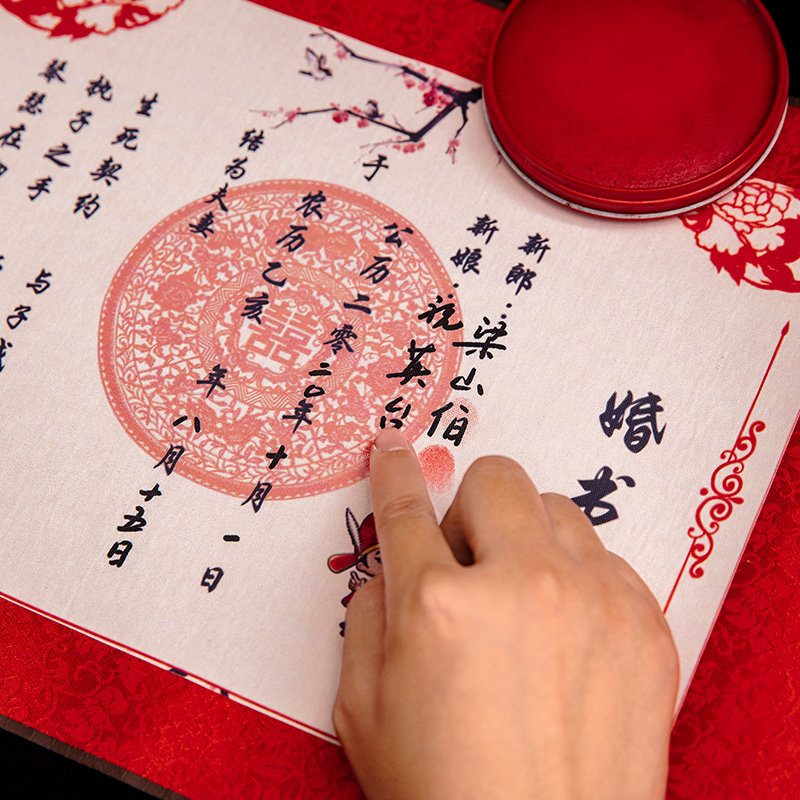 婚书
新郎：梁山伯
新娘：祝英台
于
公历二零二零年十月一日
农历乙亥年八月十五日
结为夫妻
生死契约
执子之手
琴瑟在
与子成
囍